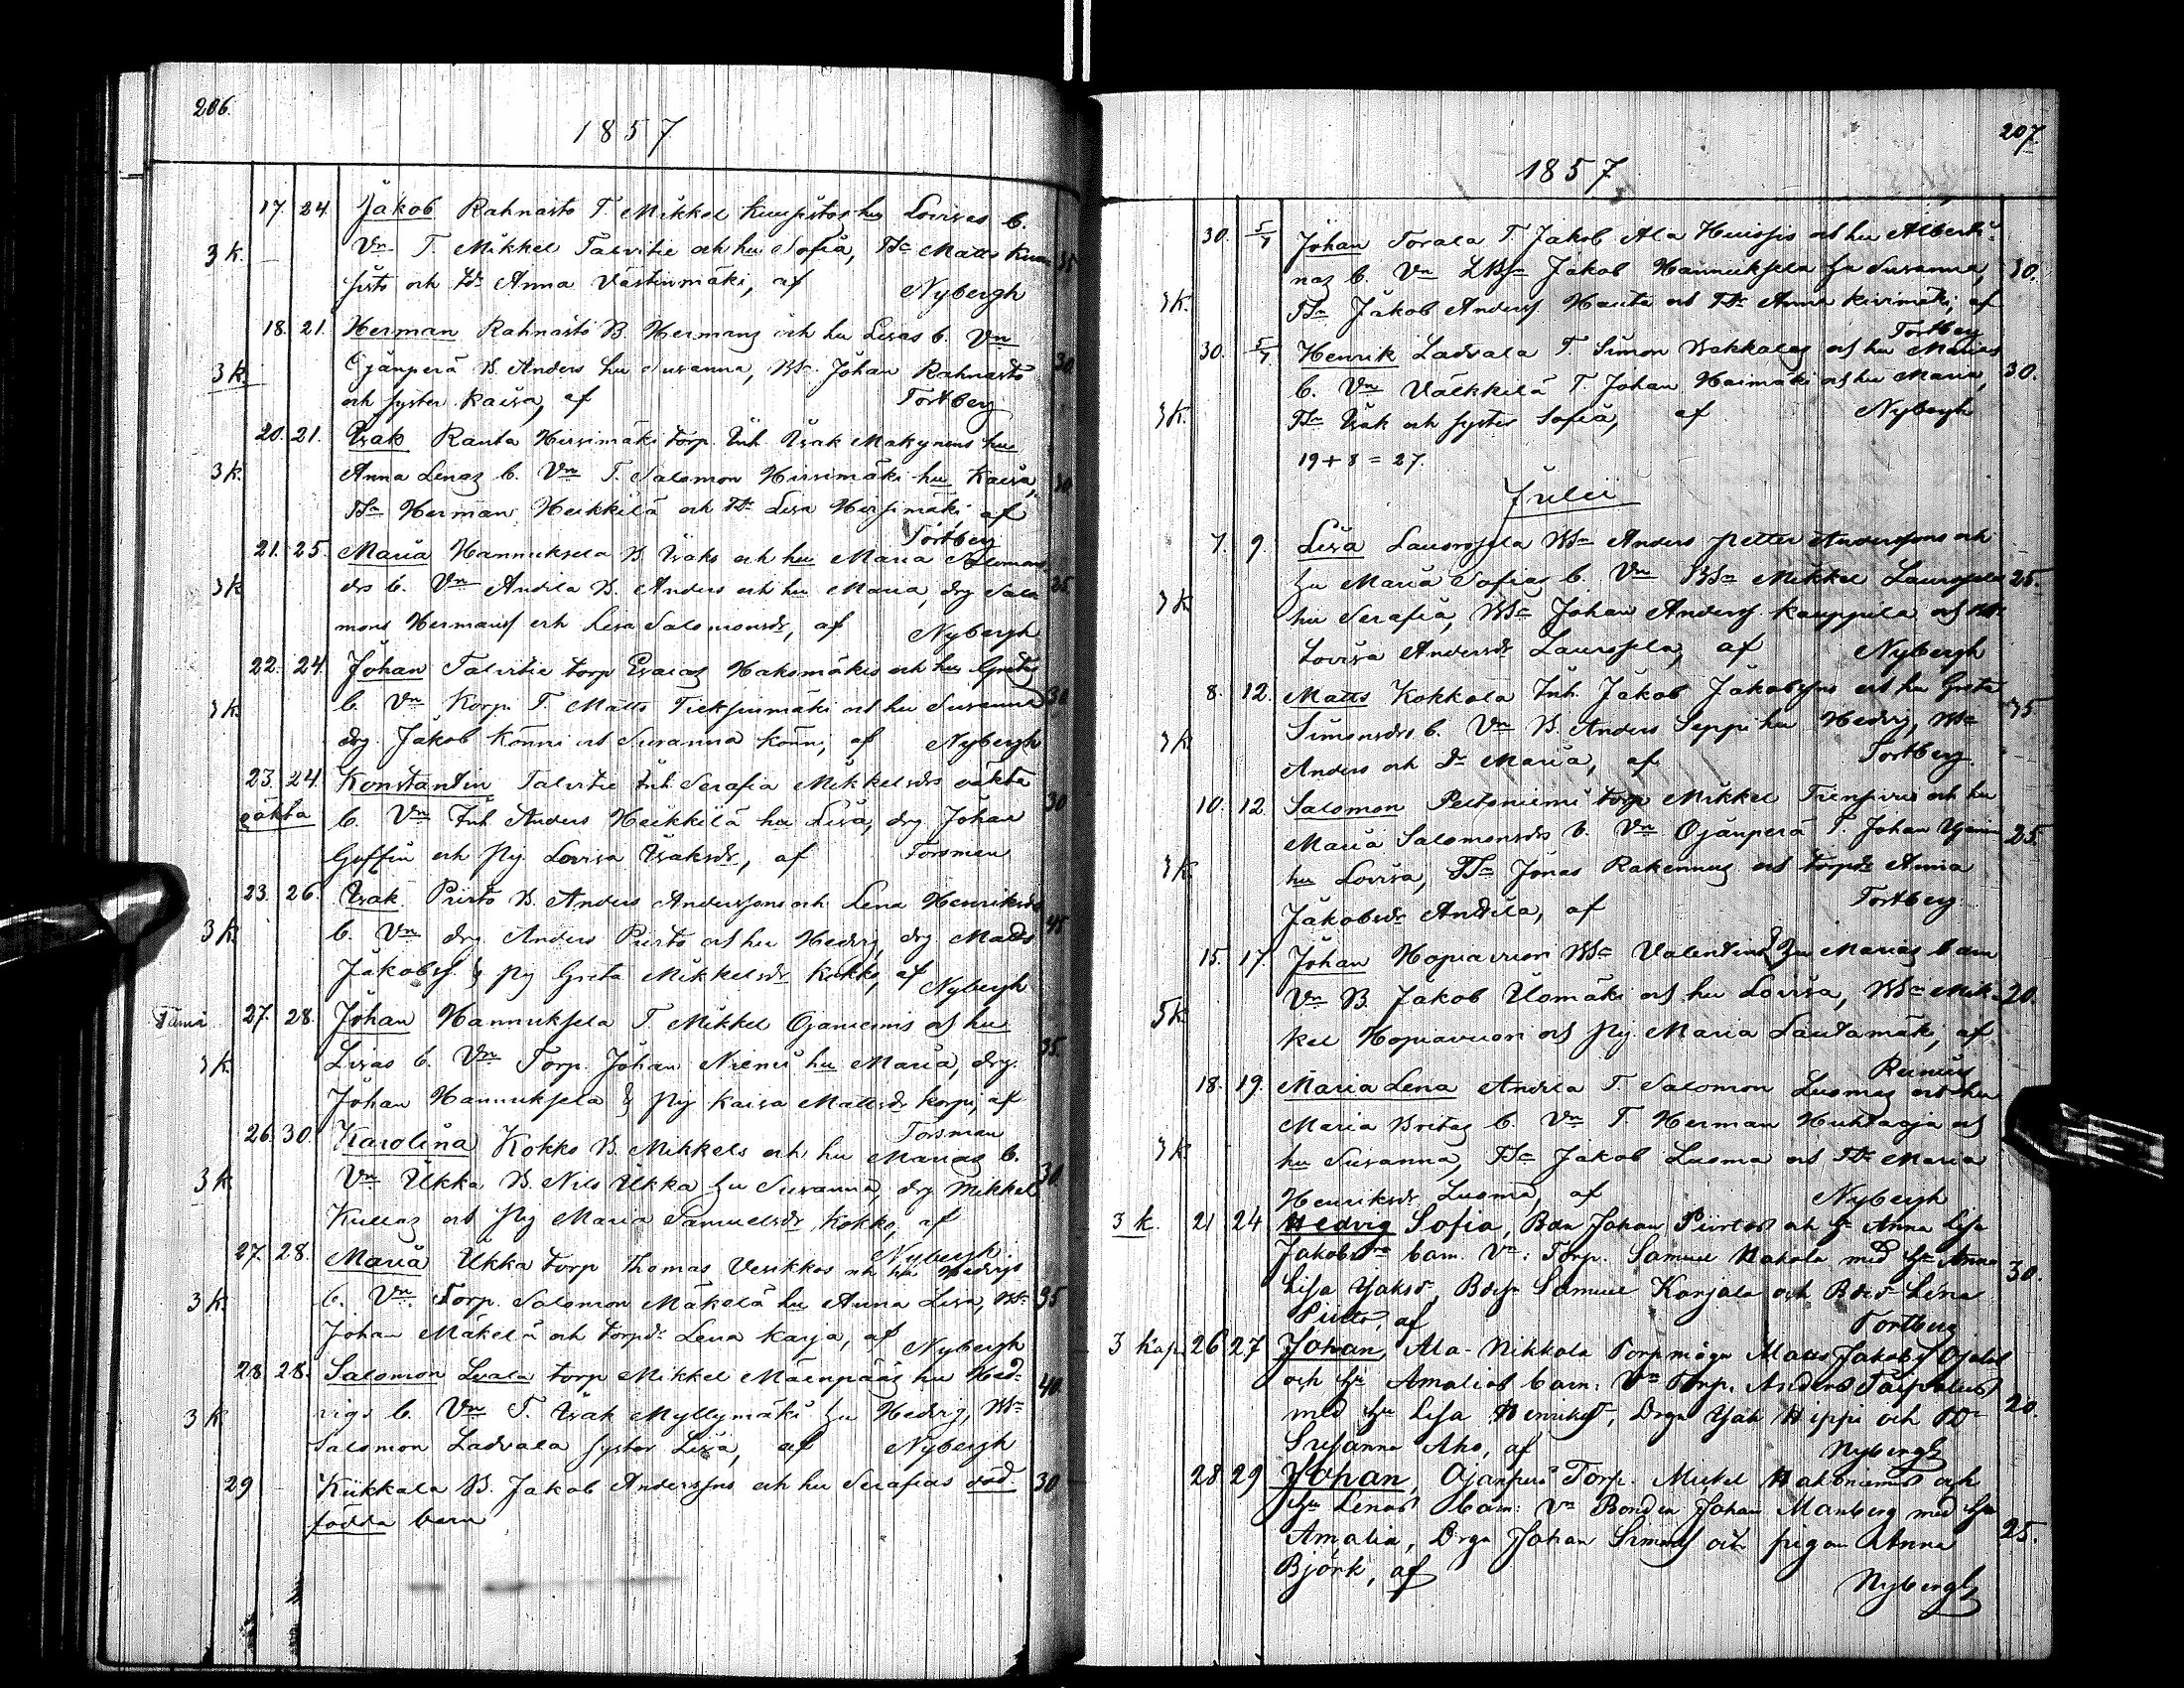 206.
1857
17. 24. Jakob Rahnasto T. Mikkel Kuusistos hu Lovisas b.
3 K. Vn T. Mikkel Talvitie och hu Sofia, TSn Matts Kuu 35
sisto och td. Anna Västinmäki, af Nybergh
18. 21. Herman Rahnasto B. Hermans och hu Lisas b. Vn
3 K. Ojanperä B. Anders hu Susanna, BSn Johan Rahnasto 30.
och syster Kaisa, af Tortberg
20. 21. Isak Rauta Hirsimäki torp. Inh. Isak Makynens hu
3 K. Anna Lenas b. Vn T. Salomon Hirsimäki hu Kaisa, 30.
TSn Herman Heikkilä och TD. Lisa Hirsimäki af
Tortberg
21. 25. Maria Hannuksela B. Isaks och hu Maria Salomons
3 K drs b. Vn Andila B. Anders och hu Maria, drg Salo 25.
mons Hermanss och Lisa Salomonsdr, af Nybergh
22. 24. Johan Talvitie torp Esaias Haksmäkis och hu Gretas
3 K. b. Vn Korpi T. Matts Tieksinmäki och hu Susanna 30
drg. Jakob Könni och Susanna Könni, af Nybergh
23. 24. Konstantin Talvitie Inh. Serafia Mikkelsdrs oäkta 30
oäkta b. Vn Inh. Anders Heikkilä hu Lisa, drg. Johan
Goffin och pig Lovisa Isaksdr, af Forsmen
23. 26. Isak Piirto B. Anders Anderssons och Lena Henriksdrs
3 K. b. Vn drg Anders Piirto och hu Hedvig, drg Matts 45
Jakobss. & pig Greta Mikkelsdr Kokko, af Nybergh
27. 28. Johan Hannuksela T. Mikkel Ojaniemis och hu
3 K. Lisas b. Vn Torp. Johan Niemi hu Maria, drg. 35.
Johan Hannuksela & pig Kaisa Mattsdr Korpi, af
Forsman
26. 30. Karolina Kokko B. Mikkels och hu Marias b.
3 K. Vn Ukka B. Nils Ukka hu Susanna, drg Mikkel 30.
Kullas och pig Maria Samuelsdr Kokko, af
Nybergh.
27. 28. Maria Ukka torp Thomas Vesikkos och hu Hedvigs
3 K. b. Vn. Torp. Salomon Mäkelä hu Anna Lisa, BSn 35
Johan Mäkelä och torpdr Lena Karja, af Nybergh
28 28. Salomon Luala torp Mikkel Mäenpääs hu Hed- 40.
3 K vigs b. Vn T. Isak Myllymäki hu Hedvig, BSn
Salomon Ladvala syster Lisa, af Nybergh
29 Kükkala B. Jakob Anderssons och hu Serafias död 30
födda barn
207.
1857
30. 5/7 Johan Torala T. Jakob Ala Huissis och hu Alberti-
nas b. Vn LBSn Jakob Hannuksela hu Susanna, 30.
3 K. TSn Jakob Anderss. Hauta och TDr Anna Kivimäki, af
Tortberg
30. 5/7 Henrik Ladvala T. Simon Wakkalas och hu Marias
b. Vn Välkkilä T. Johan Haimäki och hu Maria, 30.
3 K. TSn Isak och syster Sofia, af Nybergh
19 + 8 = 27.
Julii
7. 9. Lisa Laurosela BSn Anders Petter Anderssons och
hu Maria Sofias b. Vn BSn Mikkel Laurosela 25.
3 K hu Serafia, BSn Johan Anderss. Kauppila och
Lovisa Andersdr Laurosela, af Nybergh
8. 12. Matts Kokkola Inh. Jakob Jakobssons och hu Greta
Simonsdrs b. Vn B. Anders Seppi hu Hedvig, BSn 35
3 K Anders och Dr Maria, af Tortberg.
10. 12 Salomon Peltoniemi torp Mikkel och hu
Maria Salomonsdrs b. Vn Ojanperä T. Johan 25.
3 K. hu Lovisa, TSn Jonas Rakennus och torpdr Anna
Jakobsdr Andila, af Tortberg
15. 17. Johan Hopiavuori BSn Valentins & hu Marias barn
5 K Vn B. Jakob Ulomäki och hu Lovisa, BSn Mik- 20.
kel Hopiavuori och pig Maria Lautamäki, af
Reinius
18. 19. Maria Lena Andila T. Salomon Luomas och hu
Maria Britas b. Vn T. Herman Huhtaoja och
3 K hu Susanna, TSn Jakob Luoma och TDr Maria
Henriksdr Luoma, af Nybergh
3 k. 21 24 Hedvig Sofia, Bdn Johan Piirtos och hu Anna Lisa
Jakobsdrs barn. Vn: Torp. Samuel Hakola med hu Anna 30.
Lisa Isaksdr, Bdesn Samuel Karjala och Bdesdr Lena
Piirto, af Tortberg
3 kap. 26 27 Johan, Ala-Nikkola Torpmågn Matts Jakobss Ojalas
och hu Amalias barn: Vn Torp. Anders Taipalus
med hu Lisa Henriksdr, Drgn Isak Hippi och TDr 20.
Susanna Aho, af Nybergh
28 29 Johan, Ojanperä Torp. Mickel Hakoniemis och
hu Lenas barn: Vn Bonden Johan Manberg med hu
Amalia, Drgn Johan Simons och pigan Anna 25.
Björk, af
Nybergh